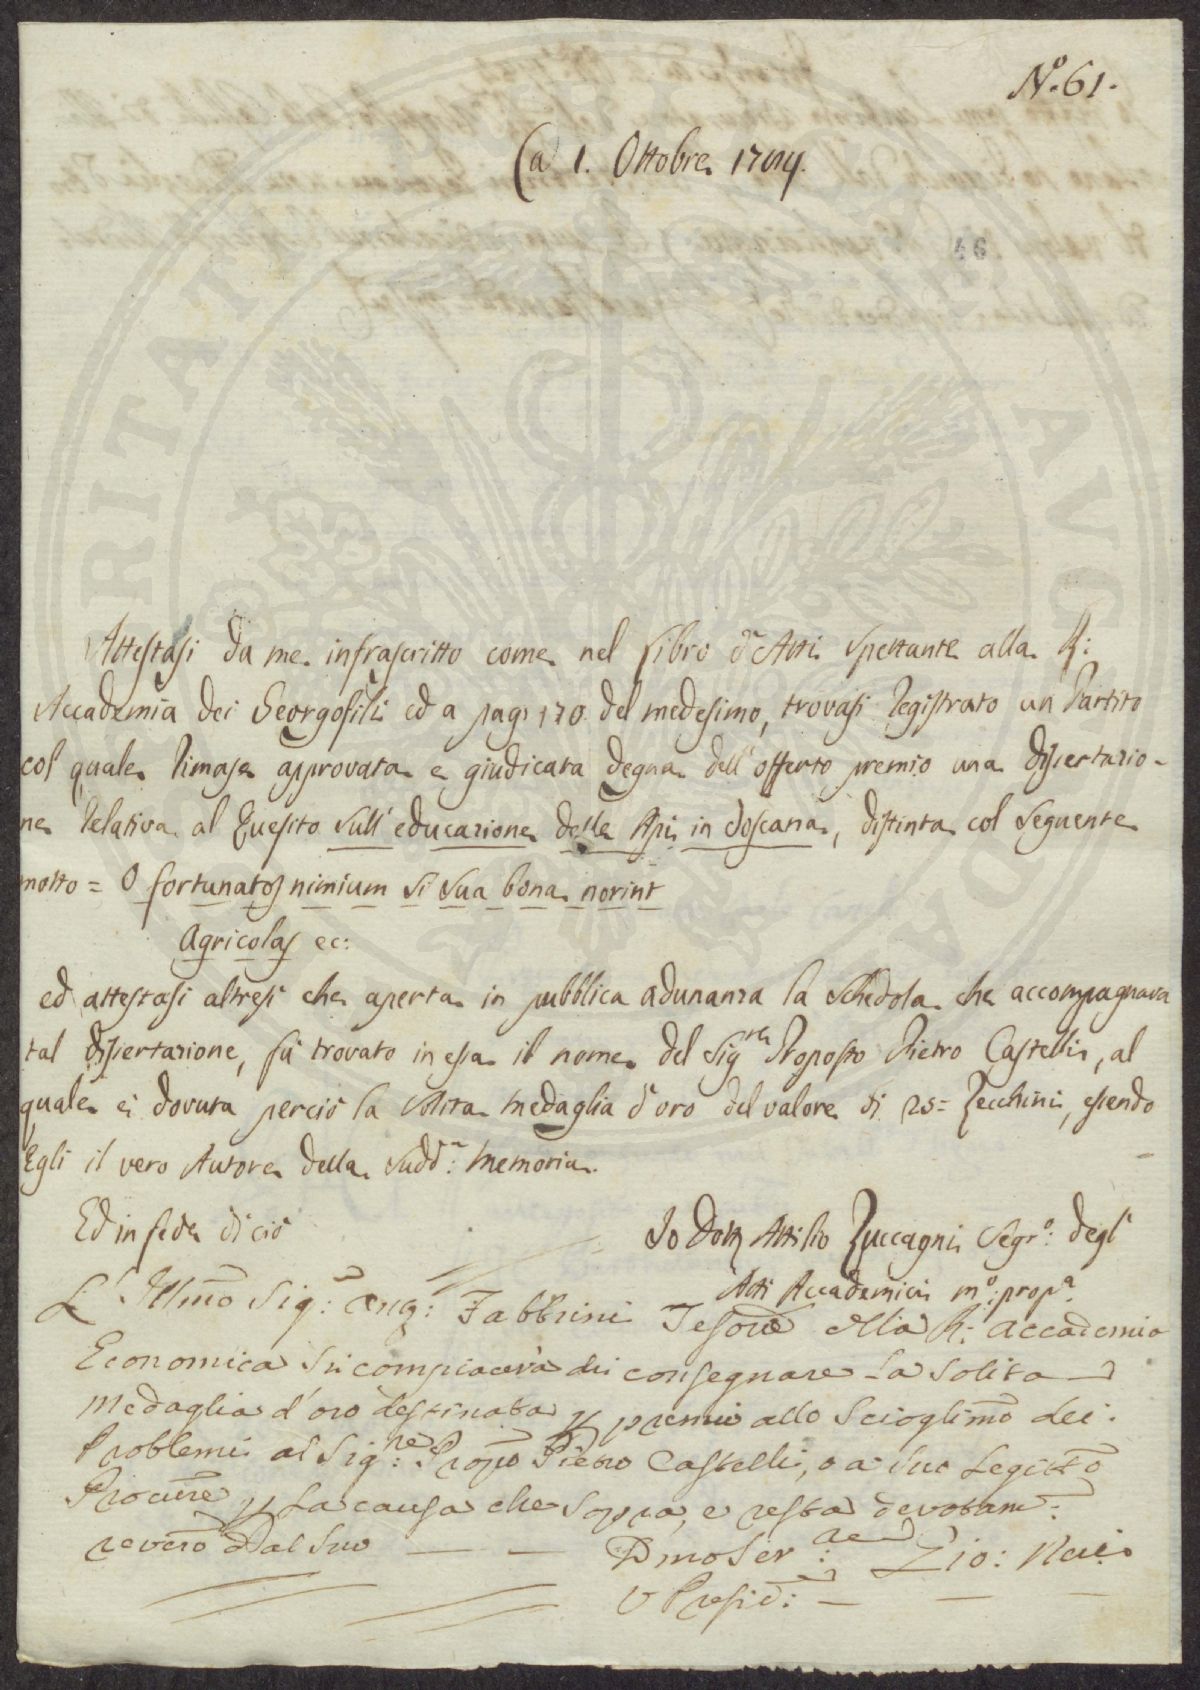 N.º 61.
(a 1. Ottobre
46
Attestasi da me infrascritto come nel libro d'Atti spettante alla R:
Accademia dei Georgofili ed a pag: 170 del medesimo, trovasi registrato un Partito
col quale rimase approvata e giudicata degna dell'offerto premio una dissertazio-
ne relativa al Quesito sull'educazione delle Api in Toscana, distinta col seguente
motto = O fortunatos nimium si sua bona norint
Agricolas ec:
ed attestasi altresì che aperta in pubblica adunanza la schedola che accompagnava
tal dissertazione, fù trovato in essa il nome del Sig.re Proposto Pietro Castelli, al
quale è dovuta perciò la solita medaglia d'oro del valore di 25= Zecchini, essendo
Egli il vero Autore della sudd.a: memoria.
Ed in fede di ciò
Io Dott. Attilio Zuccagni Segr.o: degl'
Atti Accademici m.o: prop.a:
L'Illmo Sig: Ang: Fabbrini Tesore della R: Accademia
Economica si compiacerà di consegnare la solita
medaglia d'oro destinata p premio allo scioglimo dei
Problemi al Sig:re Propo Pietro Castelli, o a suo Legitto
Procure p la causa che sopra, e resta devotam:
revero dal suo
Dmo Ser:re
V Presid: